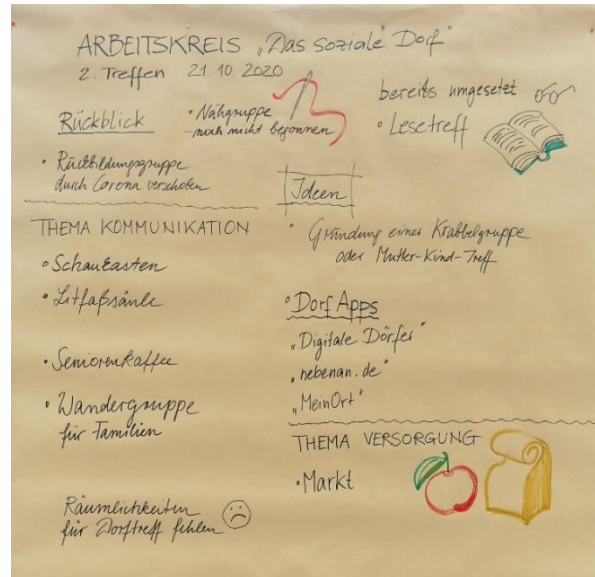 ARBEITSKREIS „Das soziale Dorf"
2. Treffen 21.10.2020
Rückblick
• Nähgruppe
noch nicht begonnen
bereits umgesetzt
• Lesetreff
• Rückbildungsgruppe
durch Corona verschoben
Ideen
• Gründung einer Krabbelgruppe
oder Mutter-Kind-Treff
THEMA KOMMUNIKATION
• Schaukasten
• Litfaßsäule
• Seniorenkaffee
• Wandergruppe
für Familien
Räumlichkeiten
für Dorftreff fehlen
• Dorf Apps
„Digitale Dörfer"
„nebenan.de"
„MeinOrt"
THEMA VERSORGUNG
• Markt